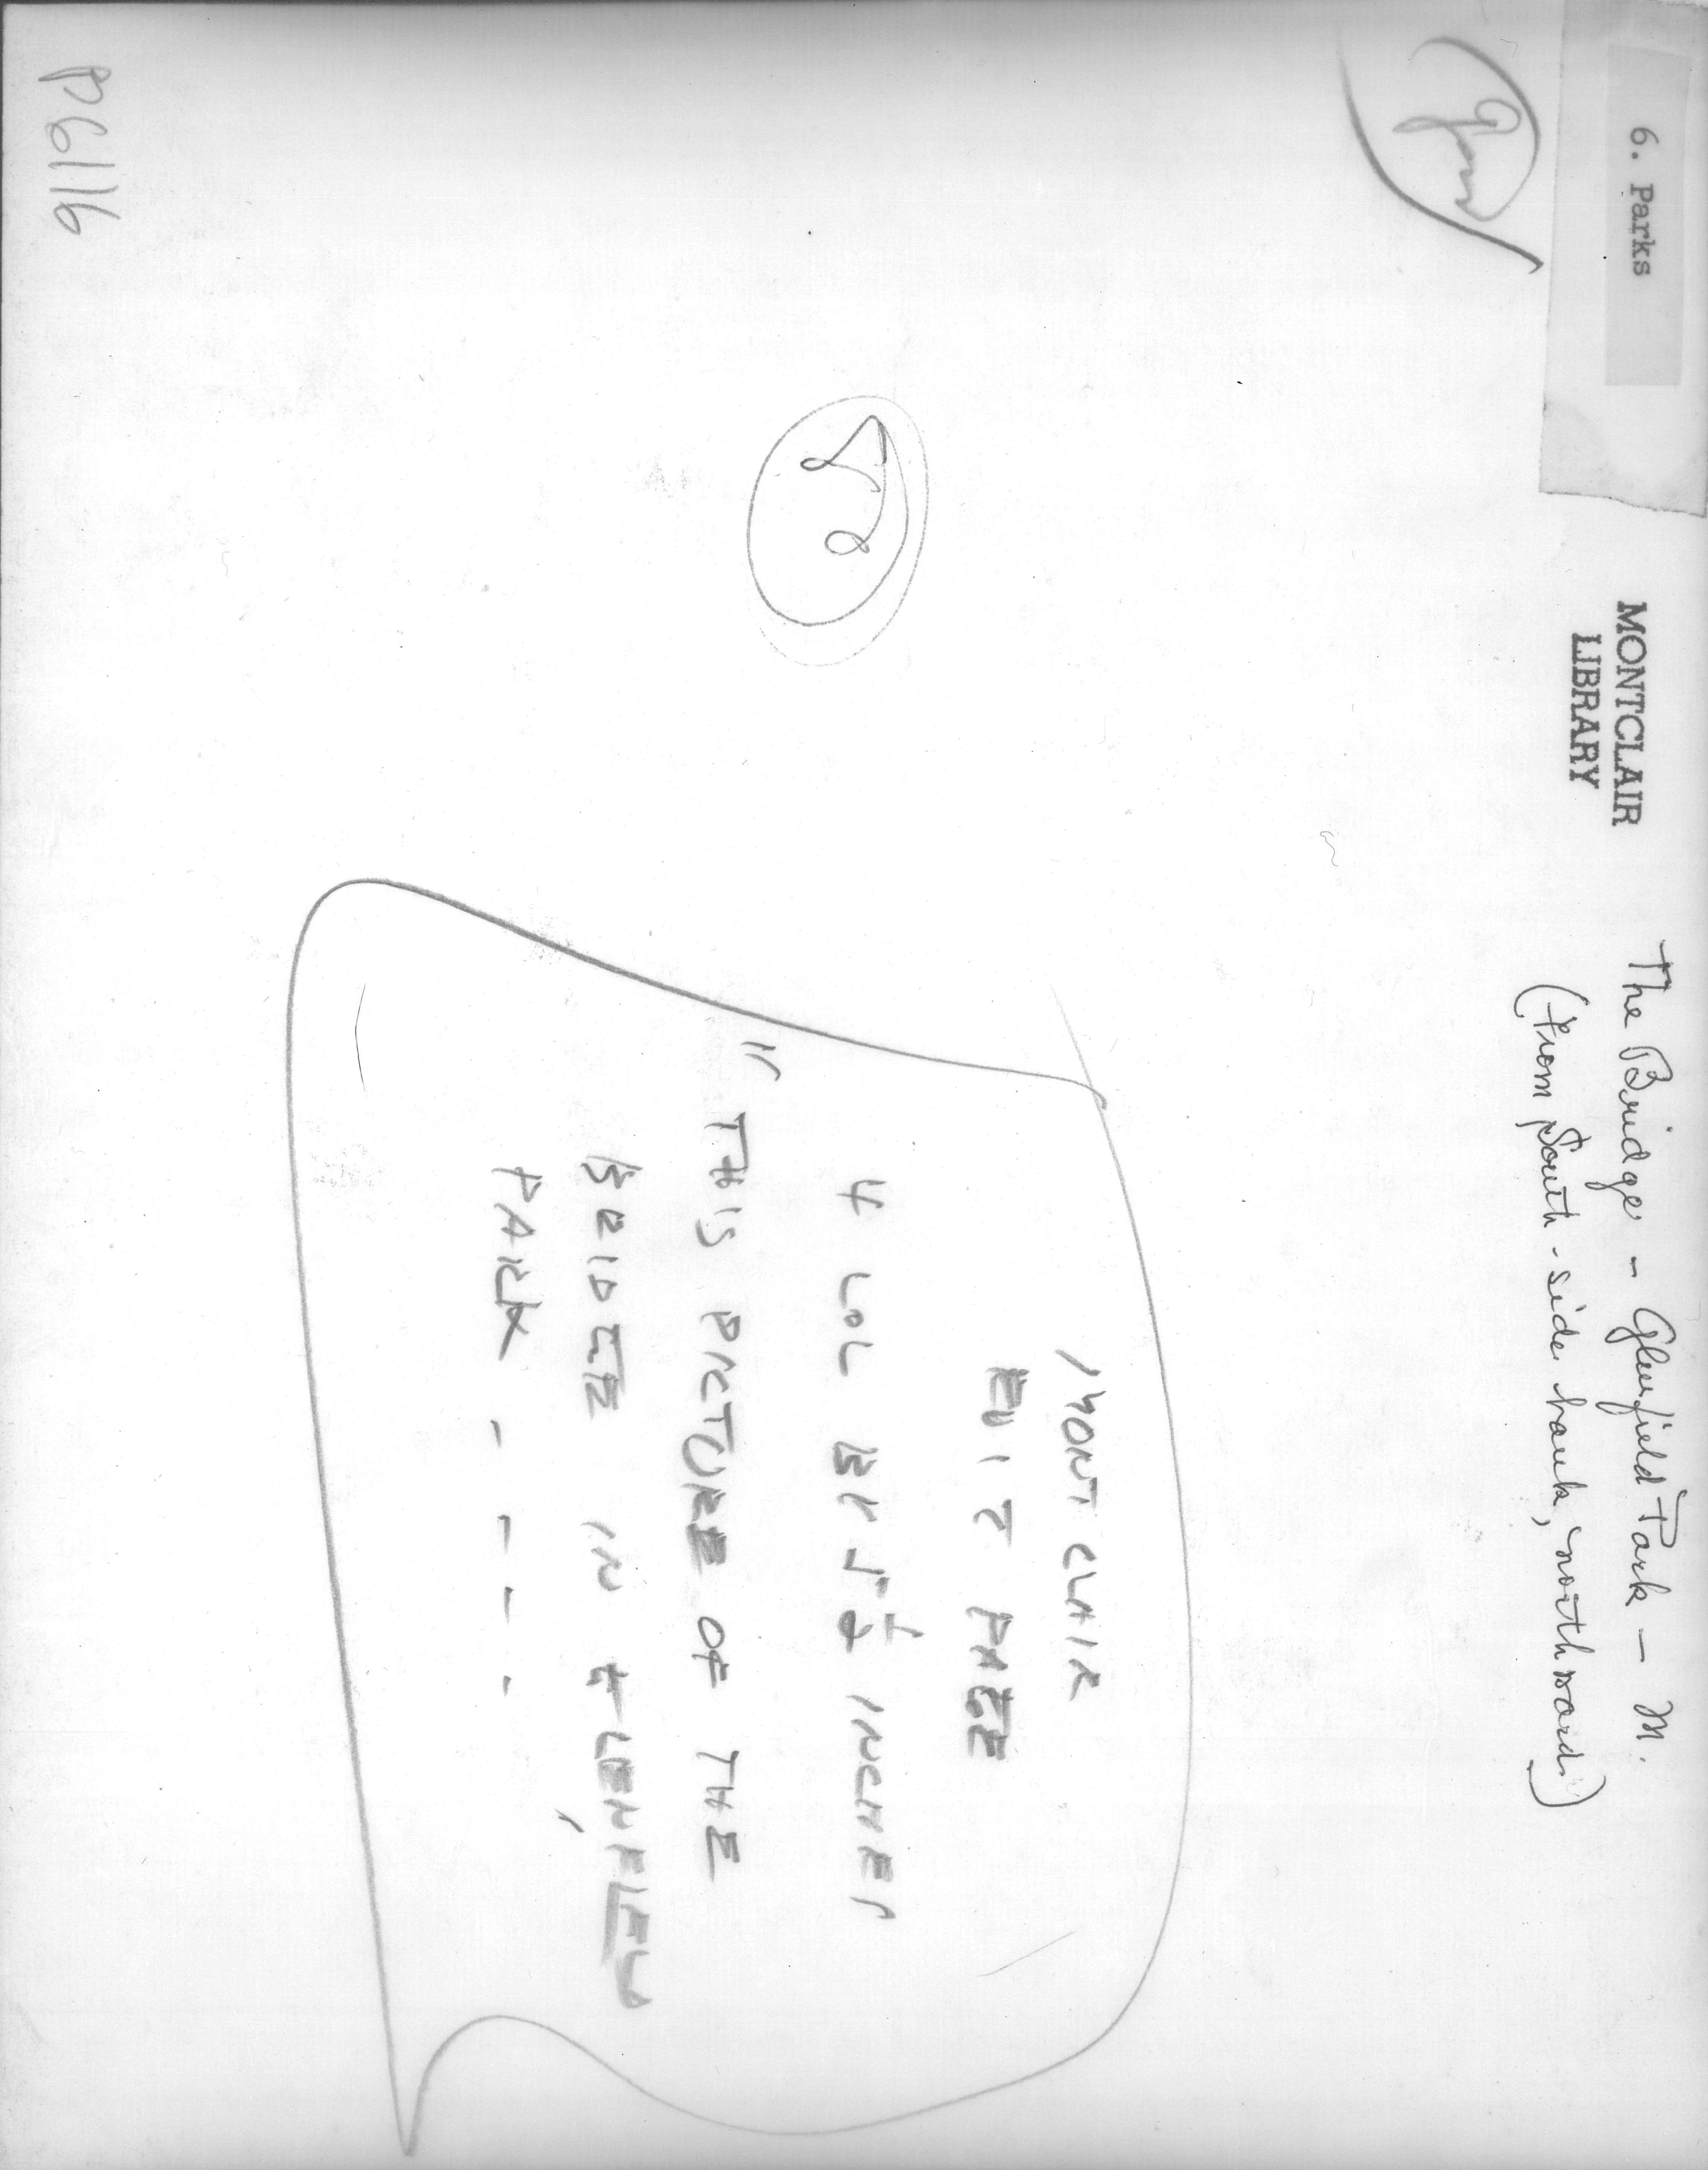 6. Parks
MONTCLAIR
LIBRARY
The Bridge - Glenfield Park - M.
(From South-side bank, northward)
MONTCLAIR
EDIT PAGE
4 COL BY 5 1/2 INCHES
"THIS PICTURE OF THE
BRIDGE IN GLENFIELD
PARK - - - -
P6116